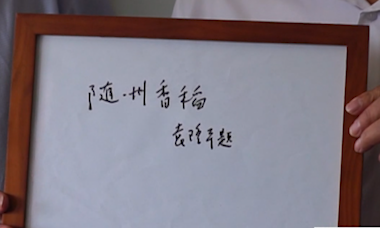 随州香稻
袁隆平题